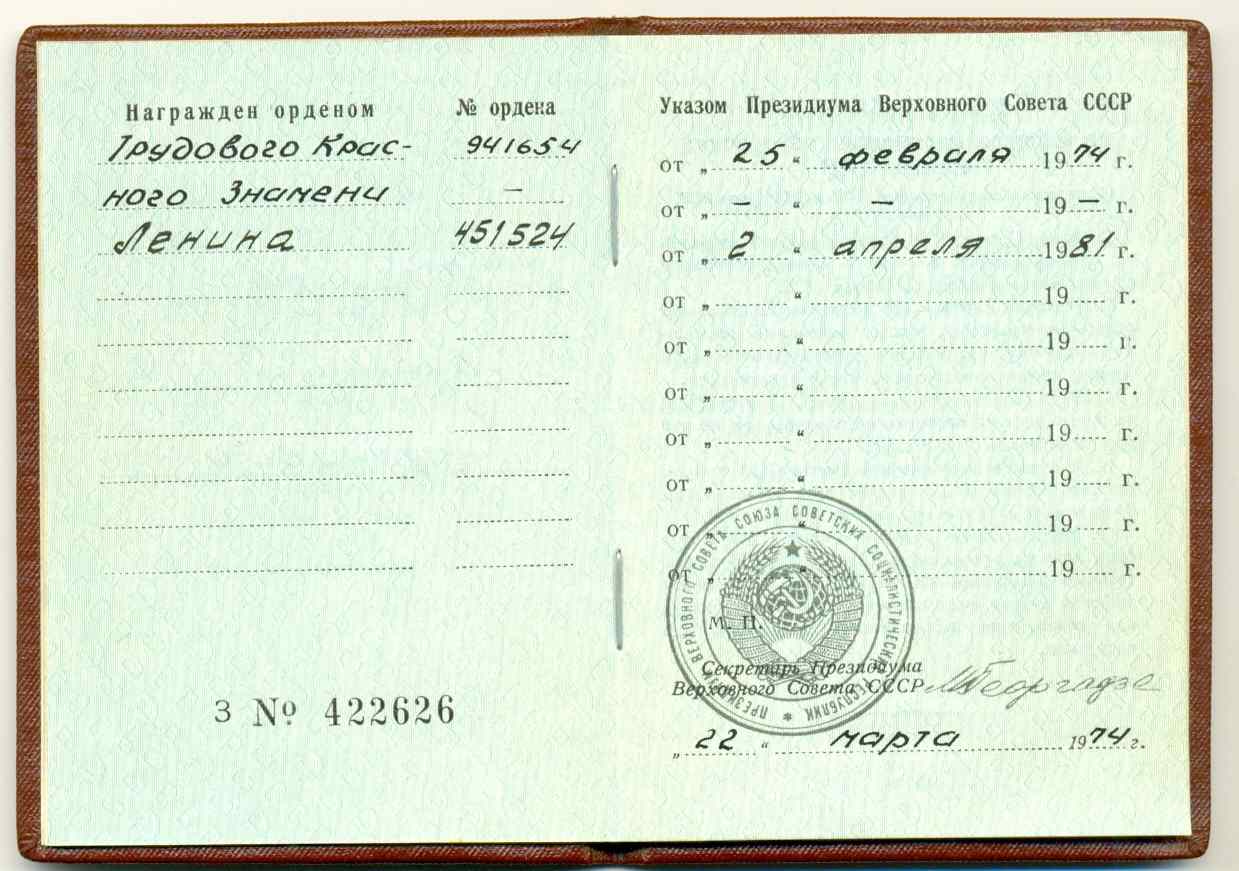 Награжден орденом № ордена
Трудового Крас- 941654
ного Знамени —
Ленина 451524
З № 422626
Указом Президиума Верховного Совета СССР
от „ 25 “ февраля 1974 г.
от „ — “ — 19 — г.
от „ 2 “ апреля 1981 г.
от „ “ 19 г.
от „ “ 19 г.
от „ “ 19 г.
от „ “ 19 г.
от „ “ 19 г.
от „ “ 19 г.
от „ “ 19 г.
ПРЕЗИДИУМ ВЕРХОВНОГО СОВЕТА СОЮЗА СОВЕТСКИХ СОЦИАЛИСТИЧЕСКИХ РЕСПУБЛИК *
М. П.
Секретарь Президиума
Верховного Совета СССР МГеоргадзе
„ 22 “ марта 1974 г.